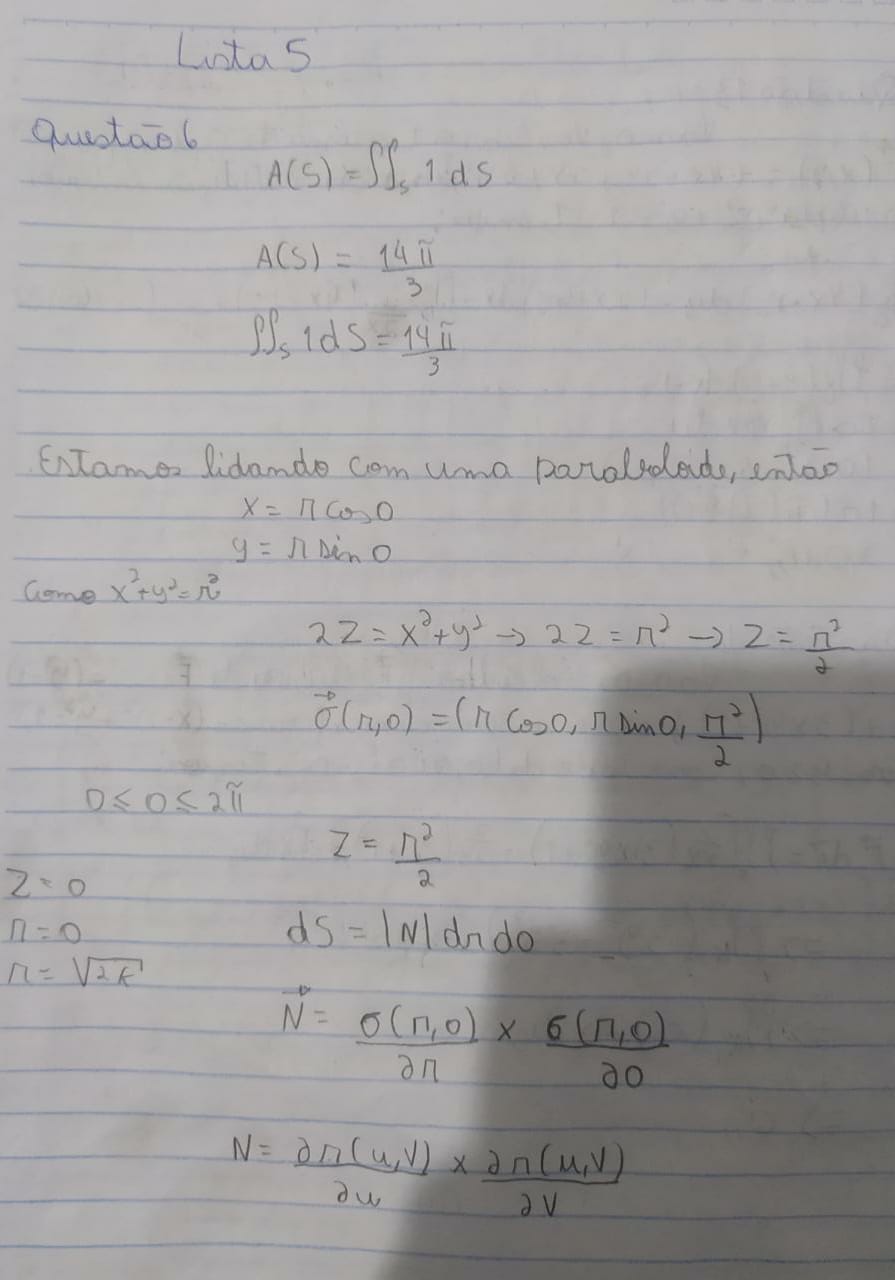 Lista 5
Questão 6
A(S) = ∬ₛ 1 dS
A(S) = 14π/3
∬ₛ 1 dS = 14π/3
Estamos lidando com uma paraboloide, então
x = r cos θ
y = r sin θ
Como x² + y² = r²
2Z = x² + y² → 2Z = r² → Z = r²/2
σ⃗(r,θ) = (r cos θ, r sin θ, r²/2)
0 ≤ θ ≤ 2π
Z = r²/2
Z = 0
r = 0
dS = |N| dr dθ
r = √2k
N⃗ = σ(r,θ)/∂r × σ(r,θ)/∂θ
N = ∂r(u,v)/∂u × ∂r(u,v)/∂v